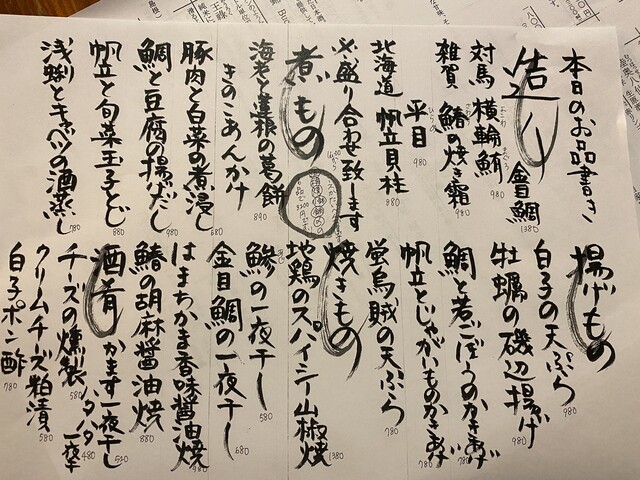 本日のお品書き
造り
金目鯛 1380
対馬 横輪鮪 980
雑賀 鰆の焼き霜 980
平目 980
北海道 帆立貝柱 980
必盛り合わせ致します
煮もの
海老と蓮根の葛餅
きのこあんかけ 840
豚肉と白菜の煮浸し 680
鯛と豆腐の揚げだし 980
帆立と旬菜玉子とじ 780
浅蜊とキャベツの酒蒸し 780
揚げもの
白子の天ぷら 980
牡蠣の磯辺揚げ 980
鯛と若ごぼうのかきあげ 780
帆立とじゃがいものかきあげ 780
蛍烏賊の天ぷら 780
焼きもの
地鶏のスパイシー山椒焼 1380
鯵の一夜干し 580
金目鯛の一夜干し 680
はまちかま香味醤油焼 980
鰆の胡麻醤油焼 880
酒肴
かます一夜干し 580
チーズの燻製 580
一夜干 480
クリームチーズ粕漬 580
白子ポン酢 780